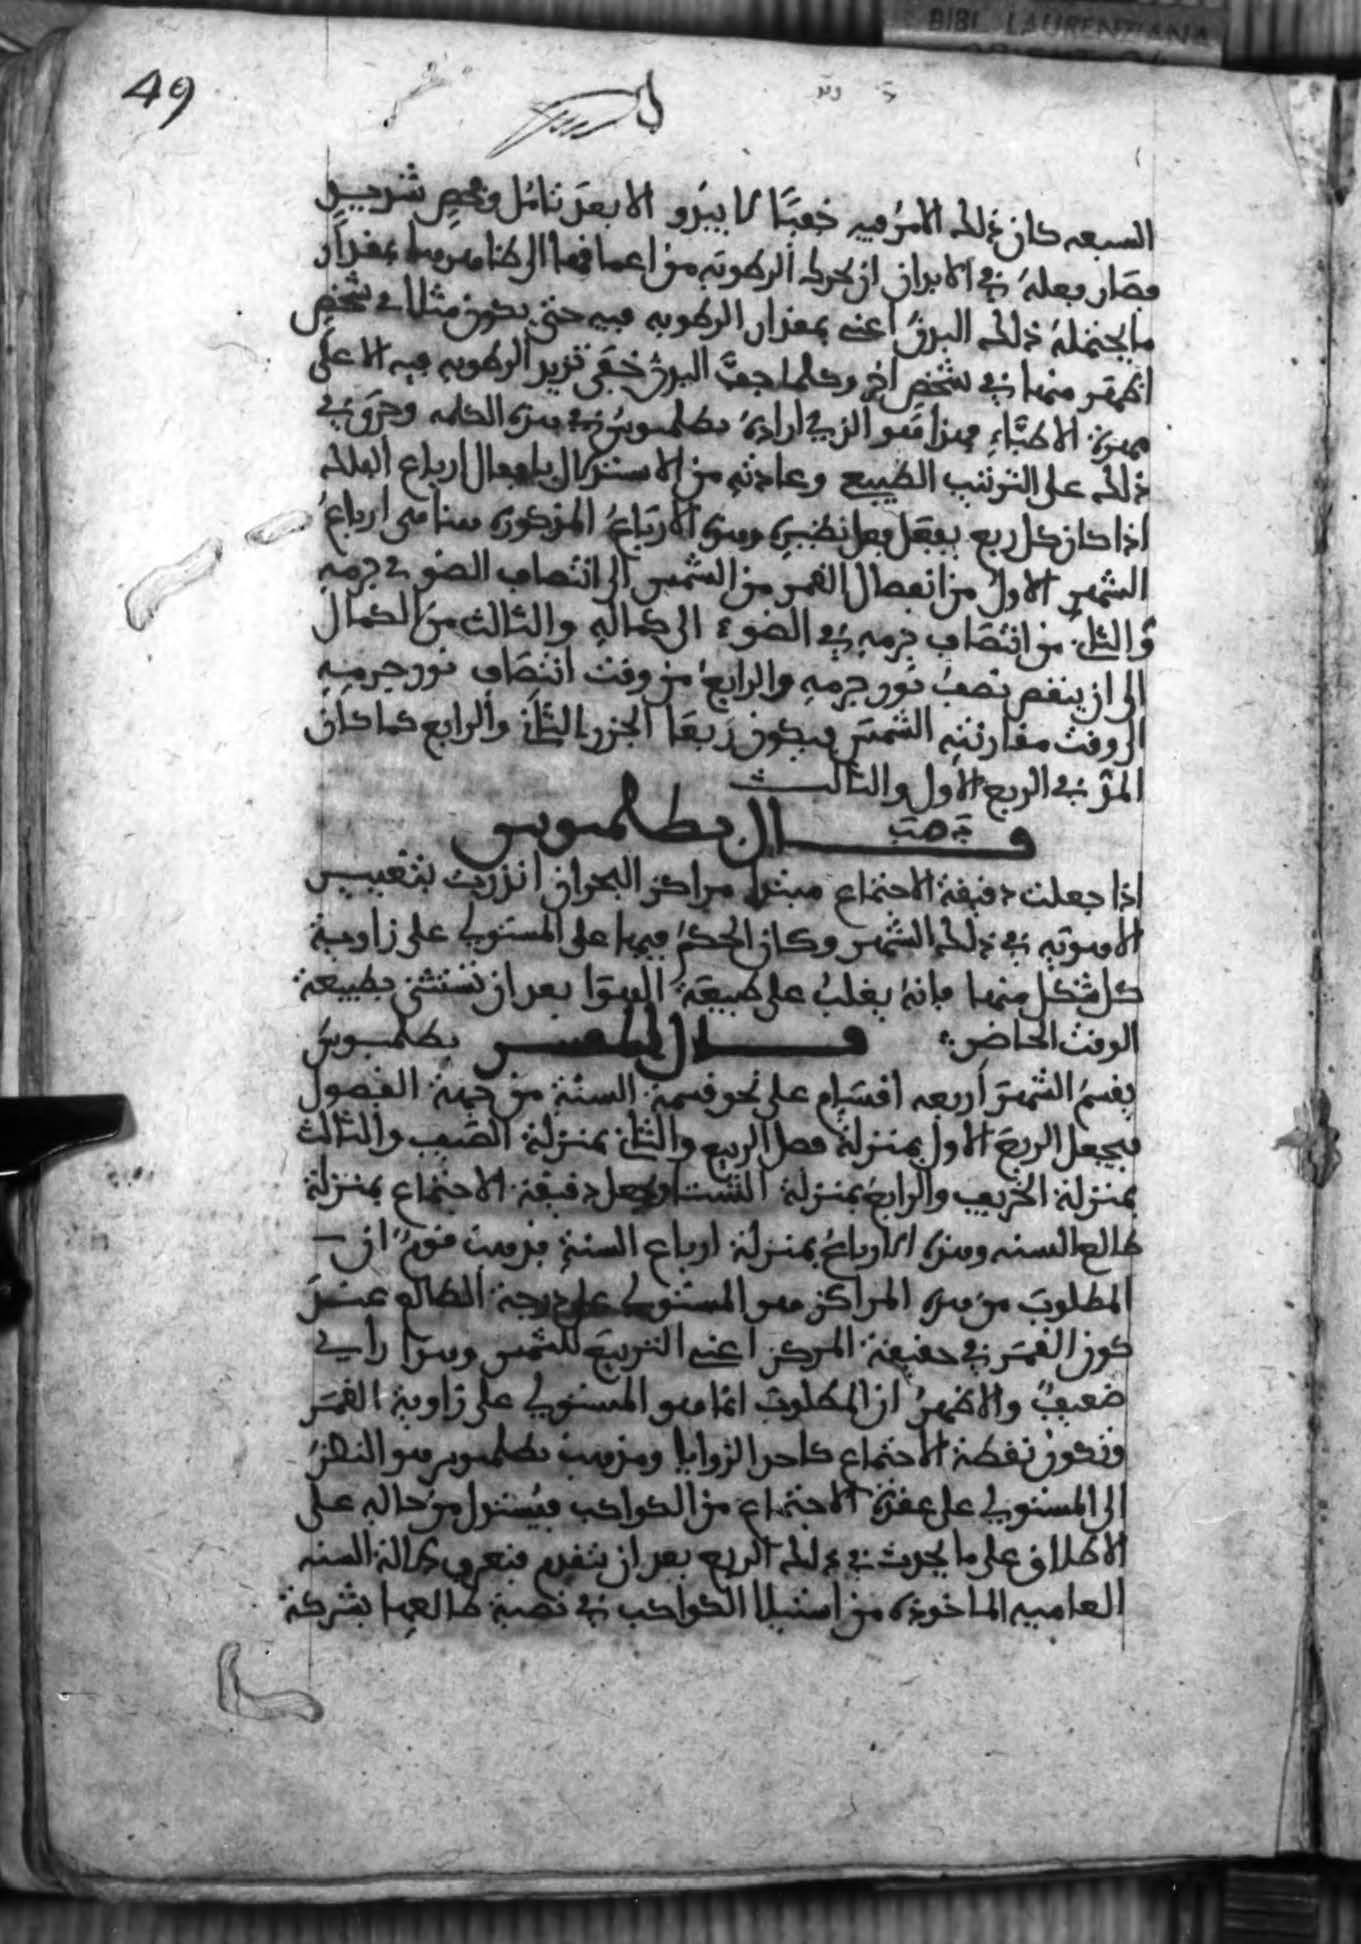 49
BIBL. LAURENZIANA
السبعه كان ذلك الامر فيه خفيًا لا يبدو الا بعد تامل وفحص شديد
فصار فعله في الابدان ان يحرك الرطوبه من اعماقها الى ظاهرها بمقدار
ما يحتمله ذلك البدن اعني بمقدار الرطوبه فيه حتى يكون مثلا في شخص
اظهر منها في شخص اخر وكلما جف البدن خفي تزيد الرطوبه فيه الا على
مهرة الاطباء فهذا هو الذي اراده بطلميوس في هذه الكلمه وجرى في
ذلك على الترتيب الطبيعي وعادته من الاستدلال بافعال ارباع الفلك
اذا كان كل ربع يفعل فعل نظيره وهذه الارباع المذكوره هنا هي ارباع
الشهر الاول من انفصال القمر من الشمس الى انتصاف الضو في جرمه
والثاني من انتصاف جرمه في الضوء الى كماله والثالث من الكمال
الى ان ينقص نصف نور جرمه والرابع من وقت انتصاف نور جرمه
الى وقت مقارنته الشمس فيكون ربعا الجزر الثاني والرابع كما كان
المد في الربع الاول والثالث
قال بطلميوس
اذا جعلت دقيقة الاجتماع مبتدا مراكز البحران انذرت بتغيير
الاهويه في ذلك الشهر وكان الحكم فيها على المستولي على زاوية
كل شكل منها فانه يغلب على طبيعة الهوا بعد ان تستثني بطبيعة
الوقت الحاضر قال المفسر بطلميوس
يقسم الشهر اربعه اقسام على نحو قسمة السنة من جهة الفصول
فيجعل الربع الاول بمنزلة فصل الربيع والثاني بمنزلة الصيف والثالث
بمنزلة الخريف والرابع بمنزلة الشتا ويجعل دقيقة الاجتماع بمنزلة
طالع السنه وهذه الارباع بمنزلة ارباع السنة فذهب قوم ان
المطلوب من هذه المراكز هو المستولي على درجة الطالع عند
كون القمر في حقيقة المركز اعني التربيع للشمس وهذا راي
ضعيف والاظهر ان المطلوب انما هو المستولي على زاوية القمر
وتكون نقطة الاجتماع كاحد الزوايا ومذهب بطلميوس هو النظر
الى المستولي على عقدة الاجتماع من الكواكب فيستدل من حاله على
الاطلاق على ما يحدث في ذلك الربع بعد ان يتقدم فتعرف دلالة السنه
العاميه الماخوذه من استيلا الكواكب في نصبة طالعها بشركة